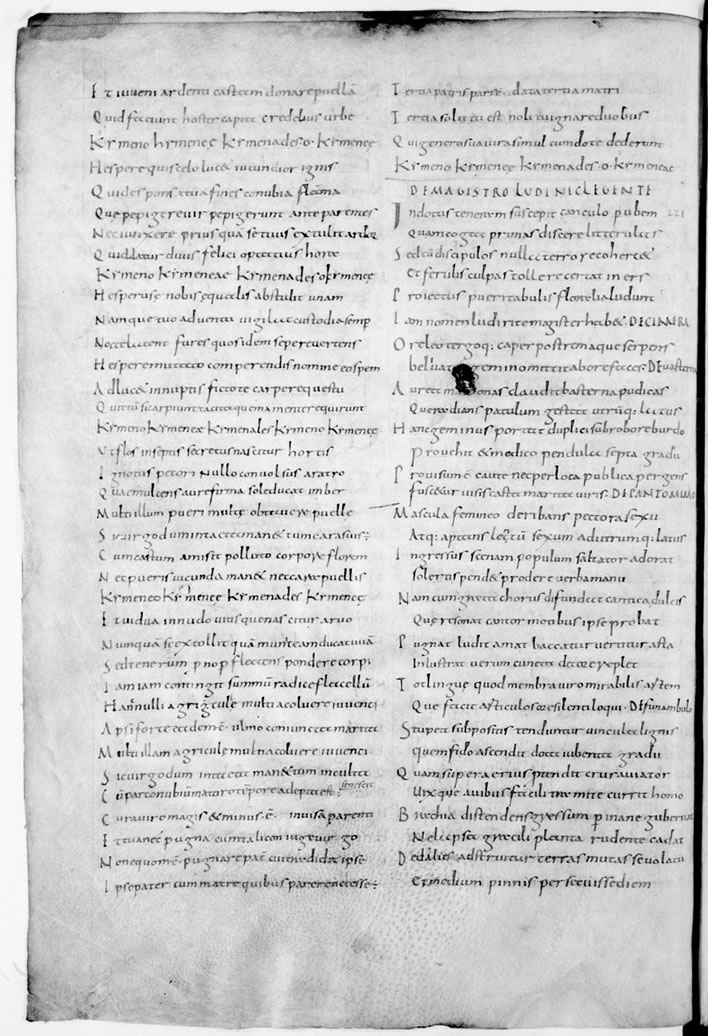 Et iuueni ardenti castam donare puellam
Quid faciunt hostes capta credelius urbe
Kymeno hymenęe kymenades o kymenęę
Hespere qui cęlo lucet iucundior ignis
Qui desponsa tua fines conubia flamma
Que pepigere uir pepigerunt ante parentes
Nec iunxere prius quã se tuus extulit ardor
Quid datur diuus felici optatius hora
Kymeno kymeneae kymenades o kymenęe
Hesperus e nobis equalis abstulit unam
Namque tuo aduentu uigilat custodia semp
Nocte latent fures quos idem sepe reuertens
Hespere mutato comperendis nomine eospem
Ad lucet innuptis ficto te carpere questu
Quittũ si carpiunt tacita quem a mente requirunt
Kymeno kymeneae kymenales kymeno kymenęe
Ut flos in septis secretus nascitur hortis
Ignotus pecori nullo conuolsus aratro
Quã mulcens aure firma sol educat imber
Multi illum pueri multę obtauere puelle
Sic uirgo dum intacta manet tum cara suis;
Cum castum amisit polluto corpore florem
Nec pueris iucunda manet nec cara puellis
Kymeneo kymenęe kymenades kymenęe
Et uidua in nudo uitis quenas citur aruo
Numquã se extollit quã munitę am ducat uuã
Sed tenerum p no p flectens pondere corp
Iam iam contingit summũ radice flacellũ
Hanc nulli agricule multi acoluere iuuenci
Ap si forte eadẽ ẽ ulmo coniuncta marita
Multi illam agricule multi acoluere iuuenci
Sic uirgo dum intacta manet tum inculta senescit
Cũ par conubiũ maturo tẽpore adepta est
Cura uiro magis & minus ẽ inuisa parenti
Et tua nec pugna cum tali coniuge uirgo
Non equom ẽ pugnare pat cui te nedidat ipse
Ipse pater cum matre quibus parere necesse ;
Tertia patris pars ẽ data tertia matri
Tertia solit tu est noli tu ignare duobus
Qui genero sua iura simul cum dote dederunt
Kymeno kymenęe kymenades o kymeneae
DE MAGISTRO LUDI NECLEGENTE
Indoctus teneram suscepit cauculo pubem 221
Quam cogat primas discere litterulas
Sed cũ discipulos nullo terrore cohercet
Et ferulis culpas tollere certat iners
Proiectis pueri tabulis floralia ludunt
Iam nomen ludi rite magister habet DECIMERA
Ore leo tergoq; caper postremaque serpens
belua gemino mittit ab ore faces DE UASTERNA
Aurea matronas claudit basterna pudicas
Que radians patulum gestat utrũq; latus
Hanc geminus portat duplici sub robore burdo
Prouehit & modico pendula septa gradu
Prouisum ẽ caute nec per loca publica pergens
fuscetur uisis casta marita uiris. DE PANTOMIMO
Mascula femineo deribans pectora sexu
Atq; aptans lentũ sexum ad utrumq; latus
Ingressus scenam populum saltator adorat
solerti spendet prodere uerba manu
Nam cum grata chorus difundit cantica dulcis
Que resonat cantor motibus ipse probat
Pugnat ludit amat baccatur uertitur asta
Inlustrat uerum cuncta decore replet
Tot lingue quod membra uiro mirabilis artem
Que facit articulos ore silenti loqui DE FUNAMBULO
Stupea subpositis tenduntur uincula lignis
quem fido ascendit docta iubenta gradu
Quam supera erius ptendit crura uiator
Uixque auibus facili tramite currit homo
Brachia distendens gressum p inane gubernat
Ne lapsa gracili planta rudente cadat
Dedalus adstruitur terras mutasse uolatu
Et medium pinnis persecuisse diem